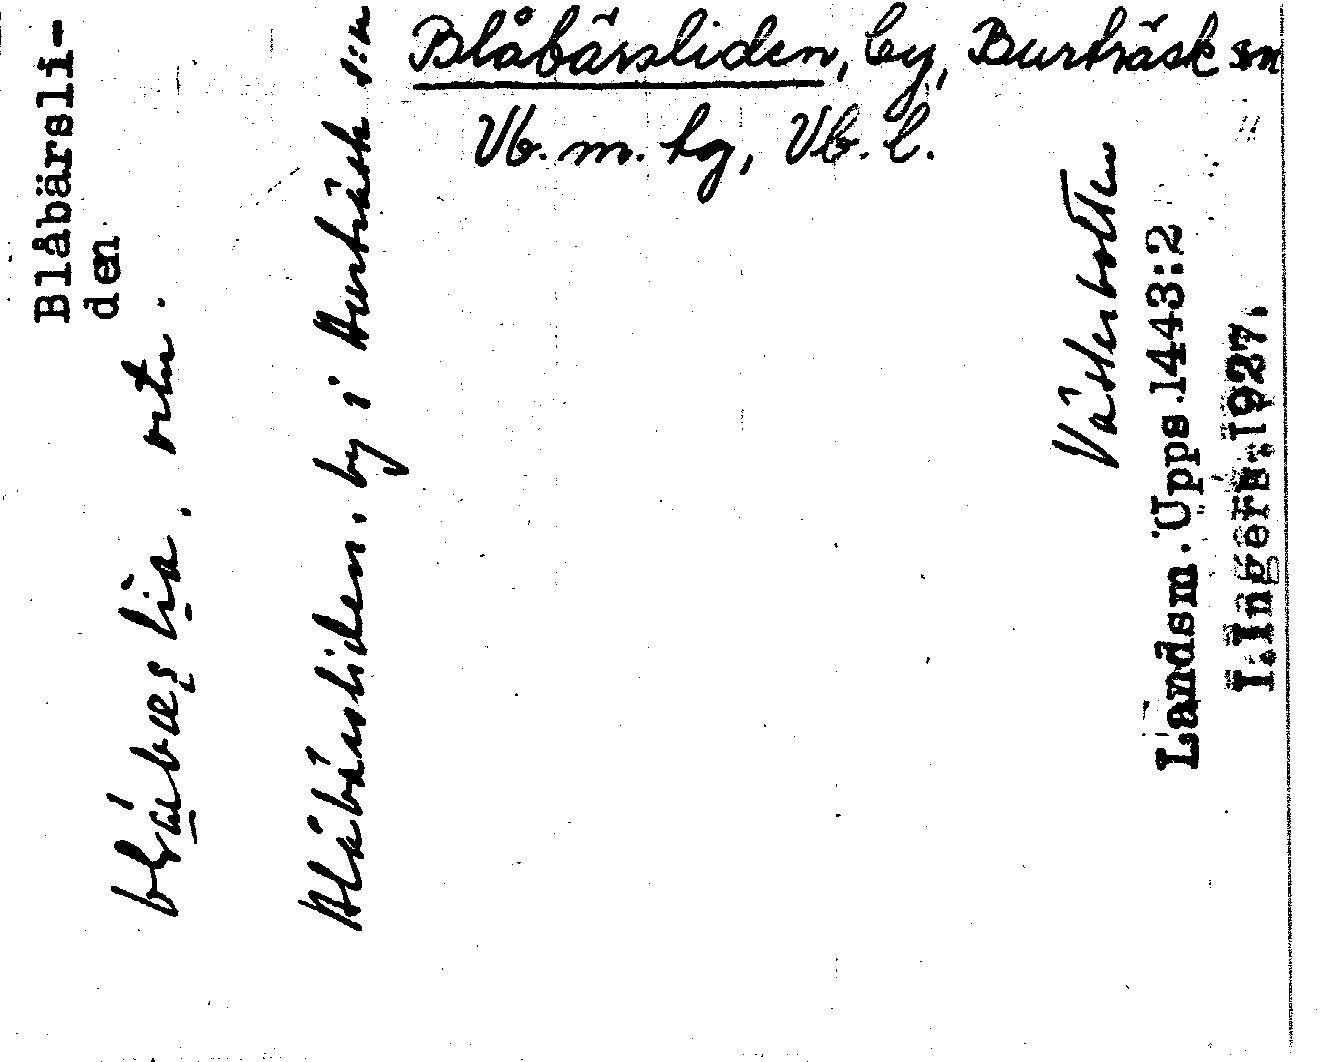 Blåbärsliden, by, Burträsk sn
Vb. m. hg, Vb. l.
Blåbärsli-
den
ortn.
Blåbärsliden. by i Burträsk s:n
Västerbotten
Landsm. Upps.1443:2
I.Ingers.1927.